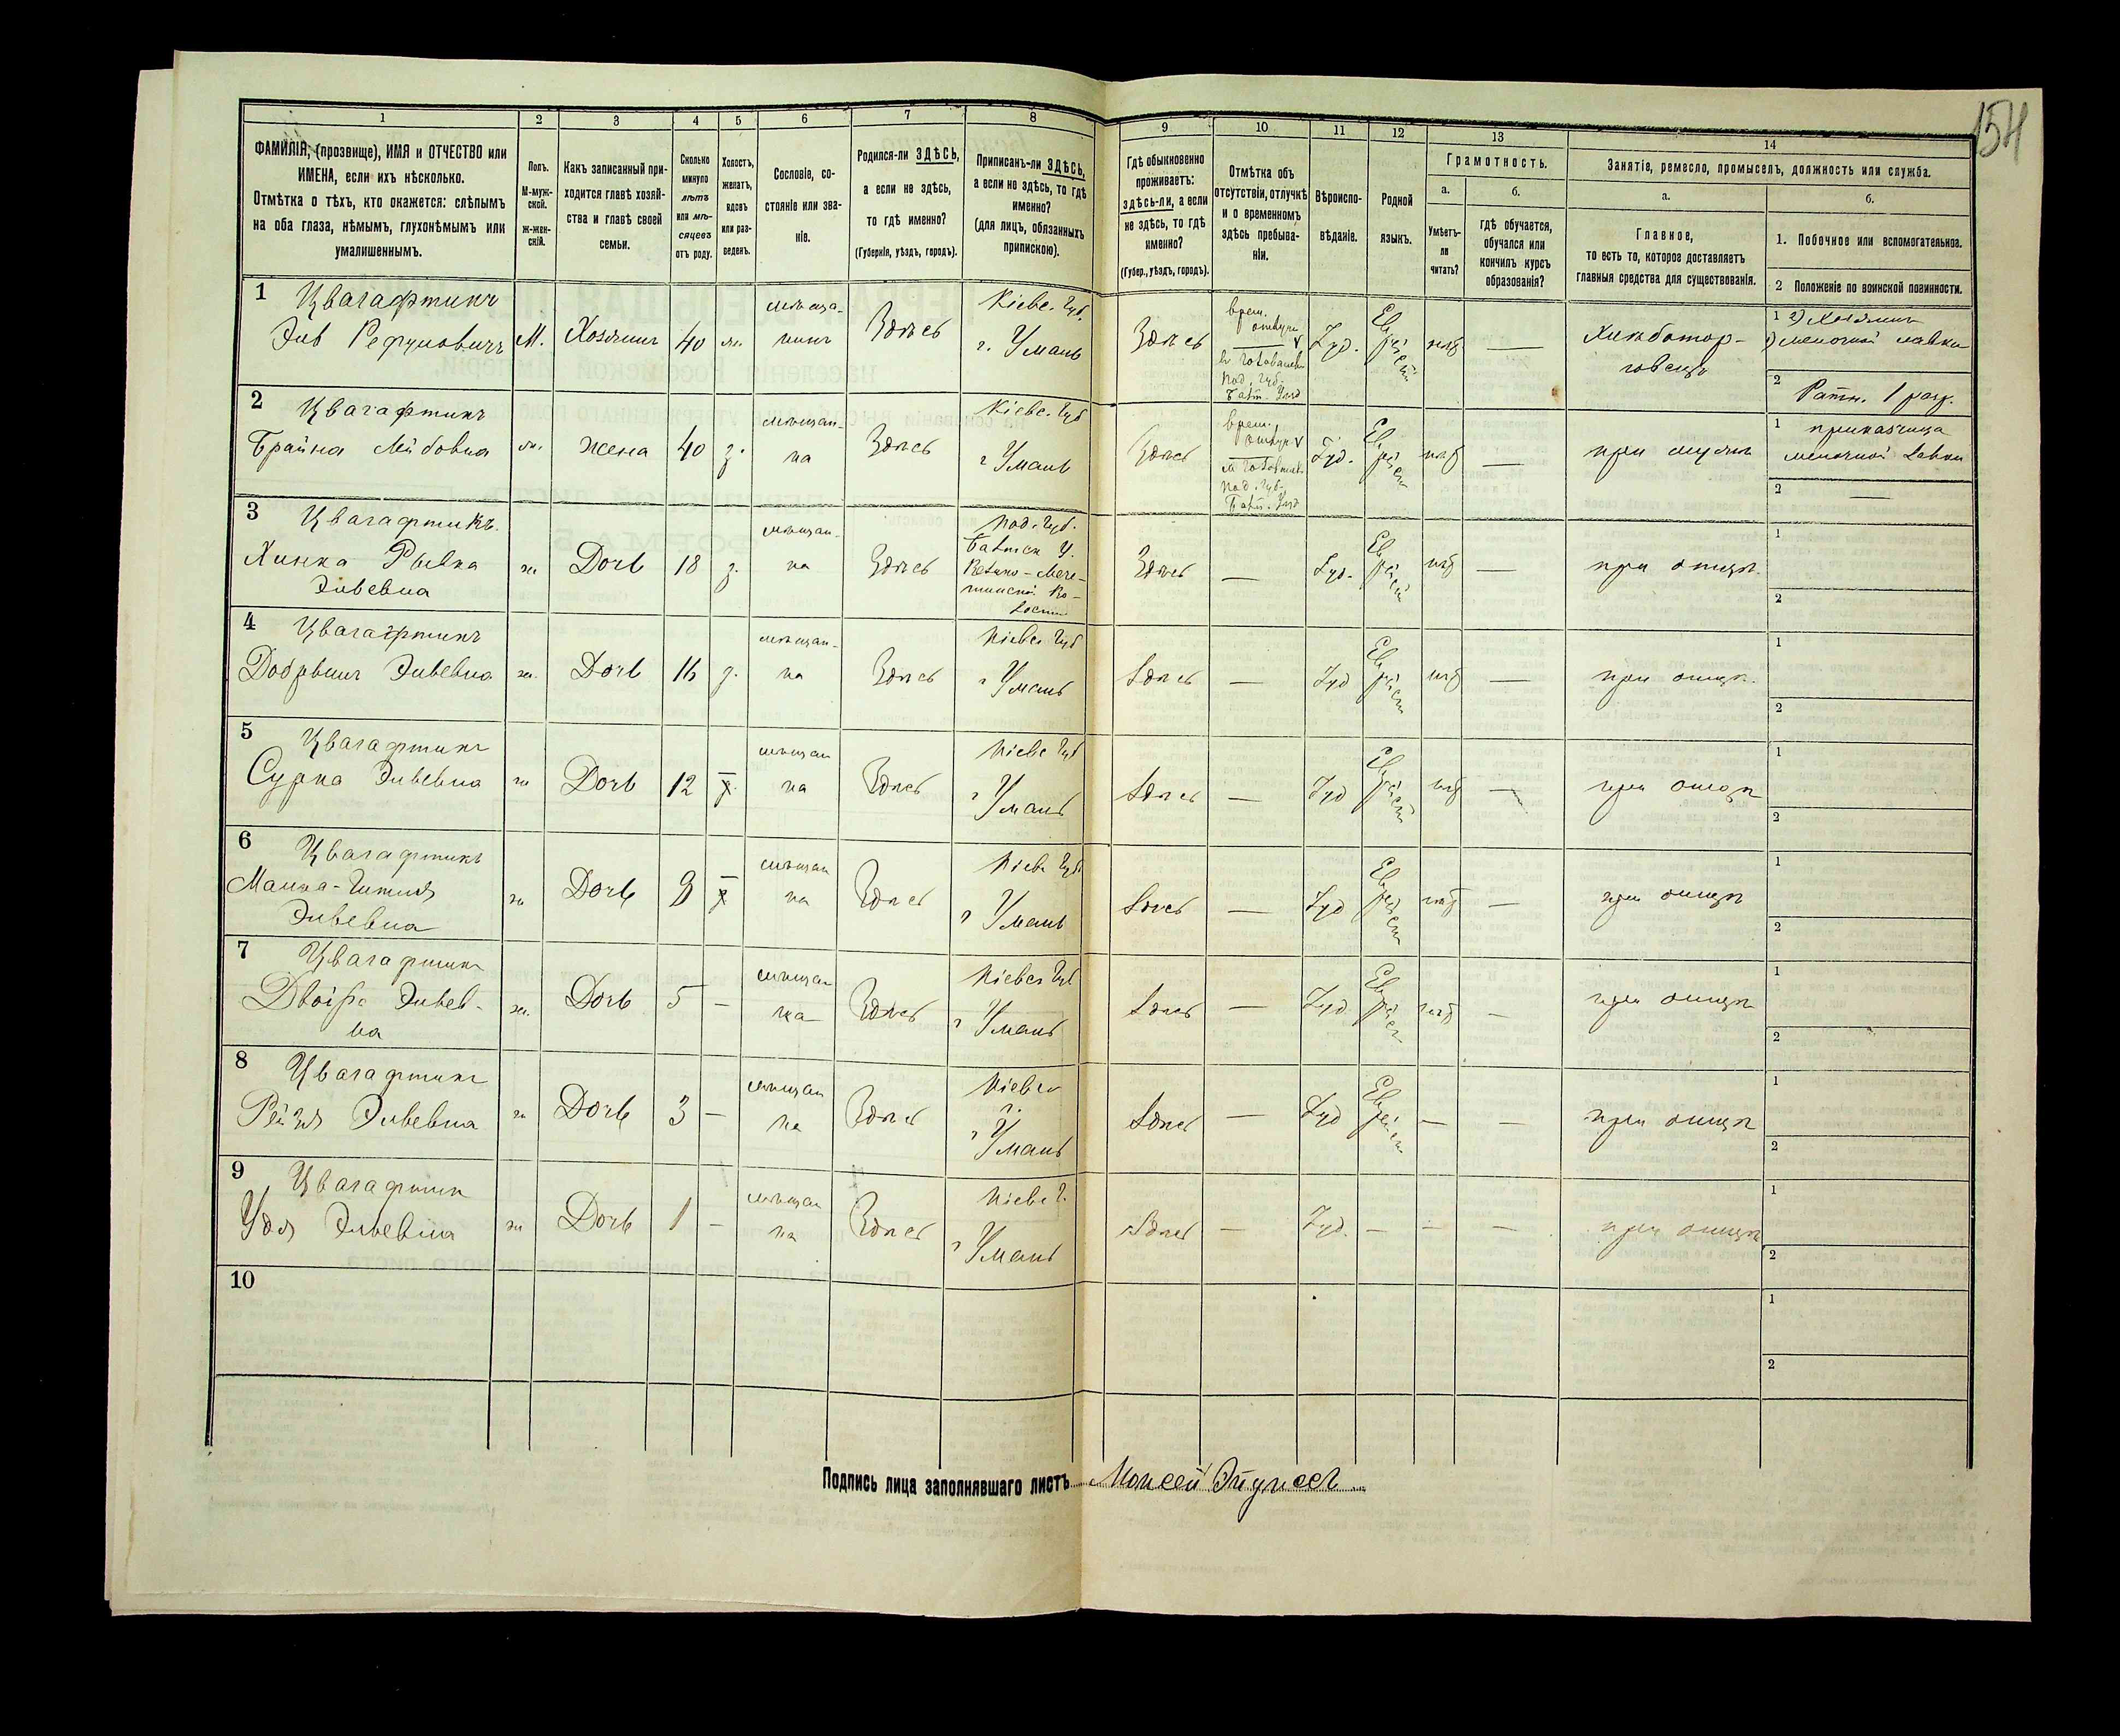 154
1 2 3 4 5 6 7 8 9 10 11 12 13 14
ФАМИЛІЯ, (прозвище), ИМЯ и ОТЧЕСТВО или
ИМЕНА, если ихъ нѣсколько.
Отмѣтка о тѣхъ, кто окажется: слѣпымъ
на оба глаза, нѣмымъ, глухонѣмымъ или
умалишеннымъ.
Полъ.
М-муж-
ской.
ж-жен-
скій.
Какъ записанный при-
ходится главѣ хозяй-
ства и главѣ своей
семьи.
Сколько
минуло
лѣтъ
или мѣ-
сяцевъ
отъ роду.
Холостъ,
женатъ,
вдовъ
или раз-
веденъ.
Сословіе, со-
стояніе или зва-
ніе.
Родился-ли ЗДѢСЬ,
а если не здѣсь,
то гдѣ именно?
(Губернія, уѣздъ, городъ).
Приписанъ-ли ЗДѢСЬ,
а если не здѣсь, то гдѣ
именно?
(для лицъ, обязанныхъ
припискою).
Гдѣ обыкновенно
проживаетъ:
здѣсь-ли, а если
не здѣсь, то гдѣ
именно?
(Губер., уѣздъ, городъ).
Отмѣтка объ
отсутствіи, отлучкѣ
и о временномъ
здѣсь пребыва-
ніи.
Вѣроиспо-
вѣданіе.
Родной
языкъ.
Грамотность.
а.
Умѣетъ-
ли
читать?
б.
гдѣ обучается,
обучался или
кончилъ курсъ
образованія?
Занятіе, ремесло, промыселъ, должность или служба.
а.
Главное,
то есть то, которое доставляетъ
главныя средства для существованія.
б.
1. Побочное или вспомогательное.
2 Положеніе по воинской повинности.
1 Цвагафтикъ
М. Хозяинъ 40 мѣща-
нинъ Здѣсь Кіевс. Губ.
г. Умань Здѣсь Іуд. Хлѣботор-
говецъ
1 2) Хозяинъ
1) мелочной лавки
2 Ратн. 1 разр.
2 Цвагафтикъ
Брайна Лейбовна ж. жена 40 з. мѣщан-
ка Здѣсь Кіевс. Губ
г Умань Здѣсь Іуд. — при мужѣ
1 приказчица
мелочной лавки
2 —
3 Цвагафтикъ.
Хинка Рывка
Эльевна ж Дочь 18 мѣщан-
ка Здѣсь Под. Губ.
Здѣсь — Іуд. — при отцѣ.
1
2
4 Цвагафтикъ
Эльевна ж. Дочь 16 мѣщан-
ка Здѣсь Кіевс Губ
г Умань Здѣсь — Іуд — при отцѣ.
1
2
5 Цвагафтикъ
Сурка Эльевна ж Дочь 12 мѣщан
ка Здѣсь Кіевс Губ
г Умань Здѣсь — Іуд — при отцѣ
1
2
6 Цвагафтикъ
Эльевна ж Дочь мѣщан
ка Здѣсь Кіевс Губ.
г Умань Здѣсь — Іуд — при отцѣ
1
2
7 Цвагафтикъ
Двойра Эльев-
на ж. Дочь 5 — мѣщан
ка Здѣсь Кіевс Губ
г Умань Здѣсь — Іуд — при отцѣ
1
2
8 Цвагафтикъ
Рейзя Эльевна ж Дочь 3 — мѣщан
ка Здѣсь Кіевс
г.
г Умань Здѣсь — Іуд — — при отцѣ
1
2
9 Цвагафтик
Удя Эльевна ж Дочь 1 — мѣщан
ка Здѣсь Кіевс Г.
г Умань Здѣсь — Іуд. — — — при отцѣ
1
2
10
1
2
Подпись лица заполнявшаго листъ Моисей